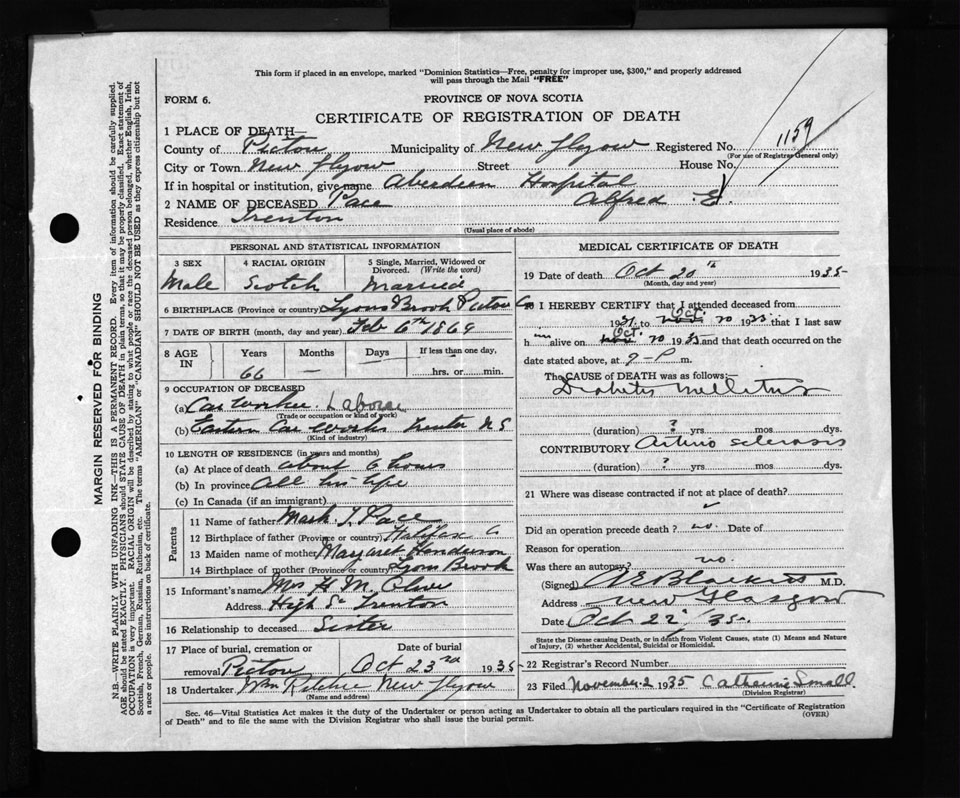 This form if placed in an envelope, marked "Dominion Statistics—Free, penalty for improper use, $300," and properly addressed
will pass through the Mail "FREE"
FORM 6.
PROVINCE OF NOVA SCOTIA
CERTIFICATE OF REGISTRATION OF DEATH
1159
1 PLACE OF DEATH—
County of Pictou Municipality of New Glgow Registered No.
(For use of Registrar General only)
City or Town New Glgow Street House No.
If in hospital or institution, give name Aberdeen Hospital
2 NAME OF DECEASED Pace Alfred E.
Residence Trenton
(Usual place of abode)
PERSONAL AND STATISTICAL INFORMATION
3 SEX 4 RACIAL ORIGIN 5 Single, Married, Widowed or
Divorced. (Write the word)
Male Scotch Married
6 BIRTHPLACE (Province or country) Lyons Brook Pictou Co
7 DATE OF BIRTH (month, day and year) Feb 6th 1869
8 AGE IN Years Months Days If less than one day,
66 — — hrs. or min.
9 OCCUPATION OF DECEASED
(a) Car Worker Laborer
(Trade or occupation or kind of work)
(b) Eastern Car Works Trenton N S
(Kind of industry)
10 LENGTH OF RESIDENCE (in years and months)
(a) At place of death about 6 hours
(b) In province All his life
(c) In Canada (if an immigrant)
Parents
11 Name of father Mark T. Pace
12 Birthplace of father (Province or country) Halifax Co
13 Maiden name of mother Margaret Henderson
14 Birthplace of mother (Province or country) Lyons Brook
15 Informant's name Mrs H. M.
Address High St Trenton
16 Relationship to deceased Sister
17 Place of burial, cremation or Date of burial
removal Pictou Oct 23rd 1935
18 Undertaker Wm New Glgow
(Name and address)
MEDICAL CERTIFICATE OF DEATH
19 Date of death Oct 20th 1935
(Month, day and year)
20 I HEREBY CERTIFY that I attended deceased from
1931 to Oct. 20 1935 that I last saw
him alive on Oct. 20 1935 and that death occurred on the
date stated above, at 9-P m.
The CAUSE of DEATH was as follows:—
Diabetes Mellitus
(duration) ? yrs mos dys.
CONTRIBUTORY Arterio sclerosis
(duration) ? yrs mos dys.
21 Where was disease contracted if not at place of death?
Did an operation precede death? no. Date of
Reason for operation
Was there an autopsy? no.
(Signed) M.D.
Address New Glasgow
Date Oct 22/35
State the Disease causing Death, or in death from Violent Causes, state (1) Means and Nature
of Injury, (2) whether Accidental, Suicidal or Homicidal.
22 Registrar's Record Number
23 Filed November 2 1935 Catharine Small
(Division Registrar)
Sec. 46—Vital Statistics Act makes it the duty of the Undertaker or person acting as Undertaker to obtain all the particulars required in the "Certificate of Registration
of Death" and to file the same with the Division Registrar who shall issue the burial permit.
(OVER)
MARGIN RESERVED FOR BINDING
N.B.—WRITE PLAINLY WITH UNFADING INK—THIS IS A PERMANENT RECORD. Every item of information should be carefully supplied.
AGE should be stated EXACTLY. PHYSICIANS should STATE CAUSE OF DEATH in plain terms, so that it may be properly classified. Exact statement of
OCCUPATION is very important. RACIAL ORIGIN will be described by stating to what people or race the deceased person belonged, whether English, Irish,
Scottish, French, German, Russian, Ruthenian, etc. The terms "AMERICAN" or "CANADIAN" SHOULD NOT BE USED as they express citizenship but not
a race or people. See instructions on back of certificate.